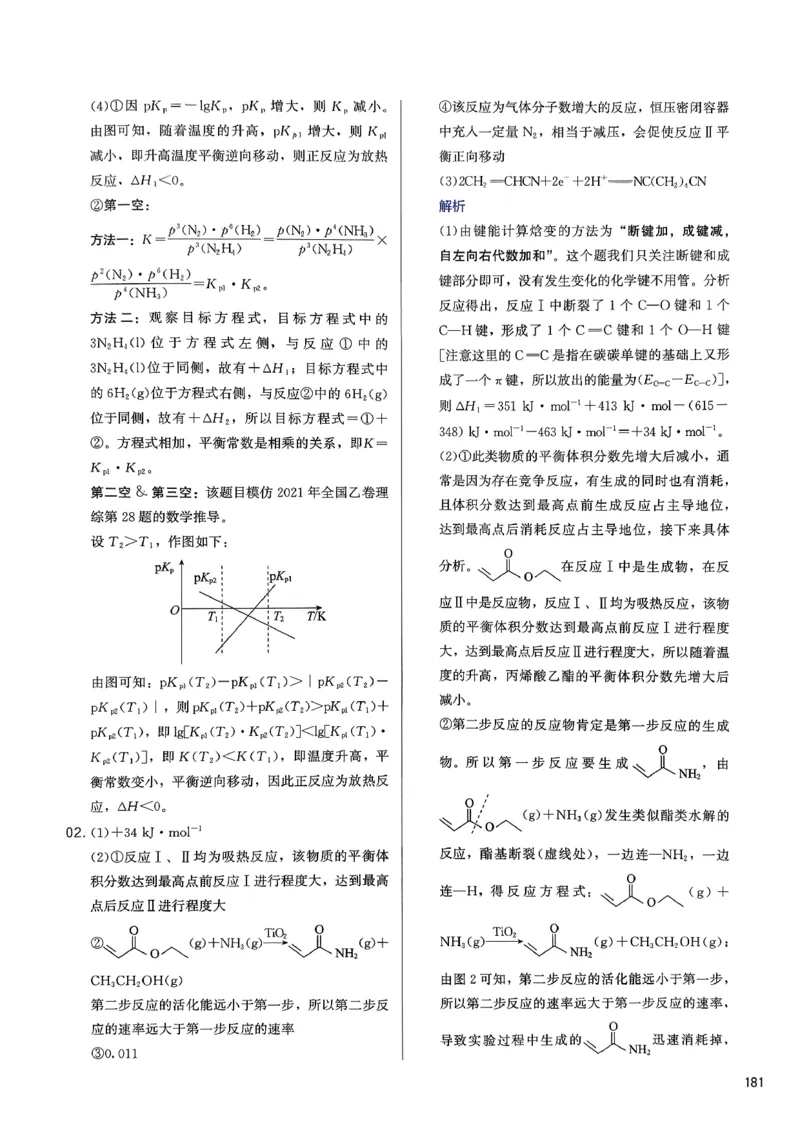 (4)①因 pKₚ=-lgKₚ,pKₚ 增大,则 Kₚ 减小。
由图可知,随着温度的升高,pKₚ₁ 增大,则 Kₚ₁
减小,即升高温度平衡逆向移动,则正反应为放热
反应,ΔH₁<0。
②第一空:
方法一:K=p³(N₂)·p⁶(H₂)/p³(N₂H₄)=p(N₂)·p⁴(NH₃)/p³(N₂H₄)×
p²(N₂)·p⁶(H₂)/p⁴(NH₃)=Kₚ₁·Kₚ₂。
方法二:观察目标方程式,目标方程式中的
3N₂H₄(l)位于方程式左侧,与反应①中的
3N₂H₄(l)位于同侧,故有+ΔH₁;目标方程式中
的 6H₂(g)位于方程式右侧,与反应②中的 6H₂(g)
位于同侧,故有+ΔH₂,所以目标方程式=①+
②。方程式相加,平衡常数是相乘的关系,即K=
Kₚ₁·Kₚ₂。
第二空 & 第三空:该题目模仿 2021 年全国乙卷理
综第 28 题的数学推导。
设 T₂>T₁,作图如下:
pKₚ
pKₚ₂
pKₚ₁
O
T₁
T₂
T/K
由图可知:pKₚ₁(T₂)-pKₚ₁(T₁)>|pKₚ₂(T₂)-
pKₚ₂(T₁)|,则pKₚ₁(T₂)+pKₚ₂(T₂)>pKₚ₁(T₁)+
pKₚ₂(T₁),即lg[Kₚ₁(T₂)·Kₚ₂(T₂)]<lg[Kₚ₁(T₁)·
Kₚ₂(T₁)],即 K(T₂)<K(T₁),即温度升高,平
衡常数变小,平衡逆向移动,因此正反应为放热反
应,ΔH<0。
02.(1)+34 kJ·mol⁻¹
(2)①反应Ⅰ、Ⅱ均为吸热反应,该物质的平衡体
积分数达到最高点前反应Ⅰ进行程度大,达到最高
点后反应Ⅱ进行程度大
② O O (g)+NH₃(g) TiO₂ → O NH₂ (g)+
CH₃CH₂OH(g)
第二步反应的活化能远小于第一步,所以第二步反
应的速率远大于第一步反应的速率
③0.011
④该反应为气体分子数增大的反应,恒压密闭容器
中充入一定量 N₂,相当于减压,会促使反应Ⅱ平
衡正向移动
(3)2CH₂=CHCN+2e⁻+2H⁺══NC(CH₂)₄CN
解析
(1)由键能计算焓变的方法为“断键加,成键减,
自左向右代数加和”。这个题我们只关注断键和成
键部分即可,没有发生变化的化学键不用管。分析
反应得出,反应Ⅰ中断裂了 1 个 C—O 键和 1 个
C—H 键,形成了 1 个 C=C 键和 1 个 O—H 键
[注意这里的 C=C 是指在碳碳单键的基础上又形
成了一个 π 键,所以放出的能量为(E_C=C-E_C-C)],
则 ΔH₁=351 kJ·mol⁻¹+413 kJ·mol-(615-
348) kJ·mol⁻¹-463 kJ·mol⁻¹=+34 kJ·mol⁻¹。
(2)①此类物质的平衡体积分数先增大后减小,通
常是因为存在竞争反应,有生成的同时也有消耗,
且体积分数达到最高点前生成反应占主导地位,
达到最高点后消耗反应占主导地位,接下来具体
分析。 O O 在反应Ⅰ中是生成物,在反
应Ⅱ中是反应物,反应Ⅰ、Ⅱ均为吸热反应,该物
质的平衡体积分数达到最高点前反应Ⅰ进行程度
大,达到最高点后反应Ⅱ进行程度大,所以随着温
度的升高,丙烯酸乙酯的平衡体积分数先增大后
减小。
②第二步反应的反应物肯定是第一步反应的生成
物。所以第一步反应要生成 O NH₂ ,由
O O (g)+NH₃(g)发生类似酯类水解的
反应,酯基断裂(虚线处),一边连—NH₂,一边
连—H,得反应方程式: O O (g)+
NH₃(g) TiO₂ → O NH₂ (g)+CH₃CH₂OH(g);
由图 2 可知,第二步反应的活化能远小于第一步,
所以第二步反应的速率远大于第一步反应的速率,
导致实验过程中生成的 O NH₂ 迅速消耗掉,
181